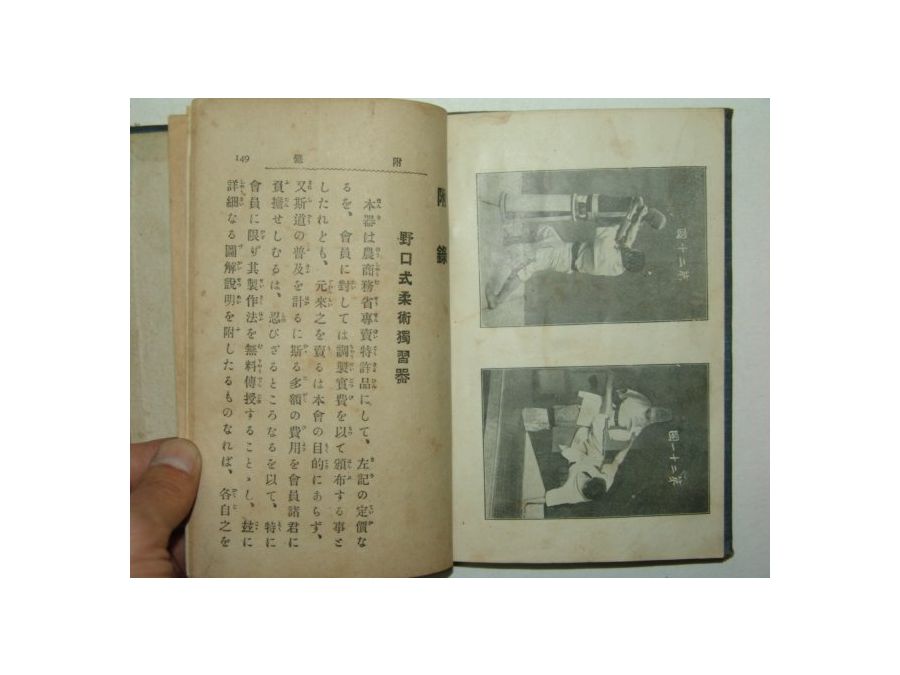 第二十圖
第二十一圖
附 錄 149
附 錄
野口式柔術獨習器
本器は農商務省專賣特許品にして、左記の定價な
るを、會員に對しては調製實費を以て頒布する事と
したれども、元來之を賣るは本會の目的にあらず、
又斯道の普及を計るに斯る多額の費用を會員諸君に
負擔せしむるは、忍びざるところなるを以て、特に
會員に限り其製作法を無料傳授することゝし、玆に
詳細なる圖解說明を附したるものなれば、各自之を